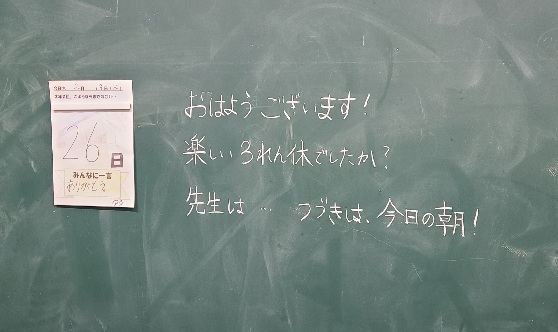 26
日
みんなに一言
ありがとう
おはようございます!
楽しい3れん休でしたか?
先生は… つづきは、今日の朝!